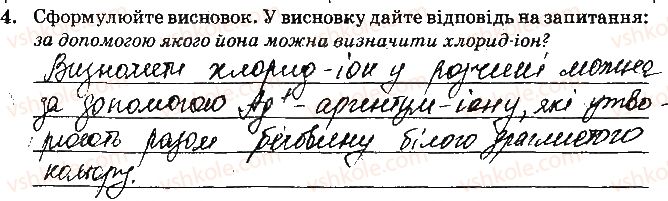 4. Сформулюйте висновок. У висновку дайте відповідь на запитання:
за допомогою якого йона можна визначити хлорид-іон?
Визначити хлорид-іон у розчині можна
за допомогою Ag⁺- аргентум-іону, які утво-
рюють разом білого драглистого
кольору.